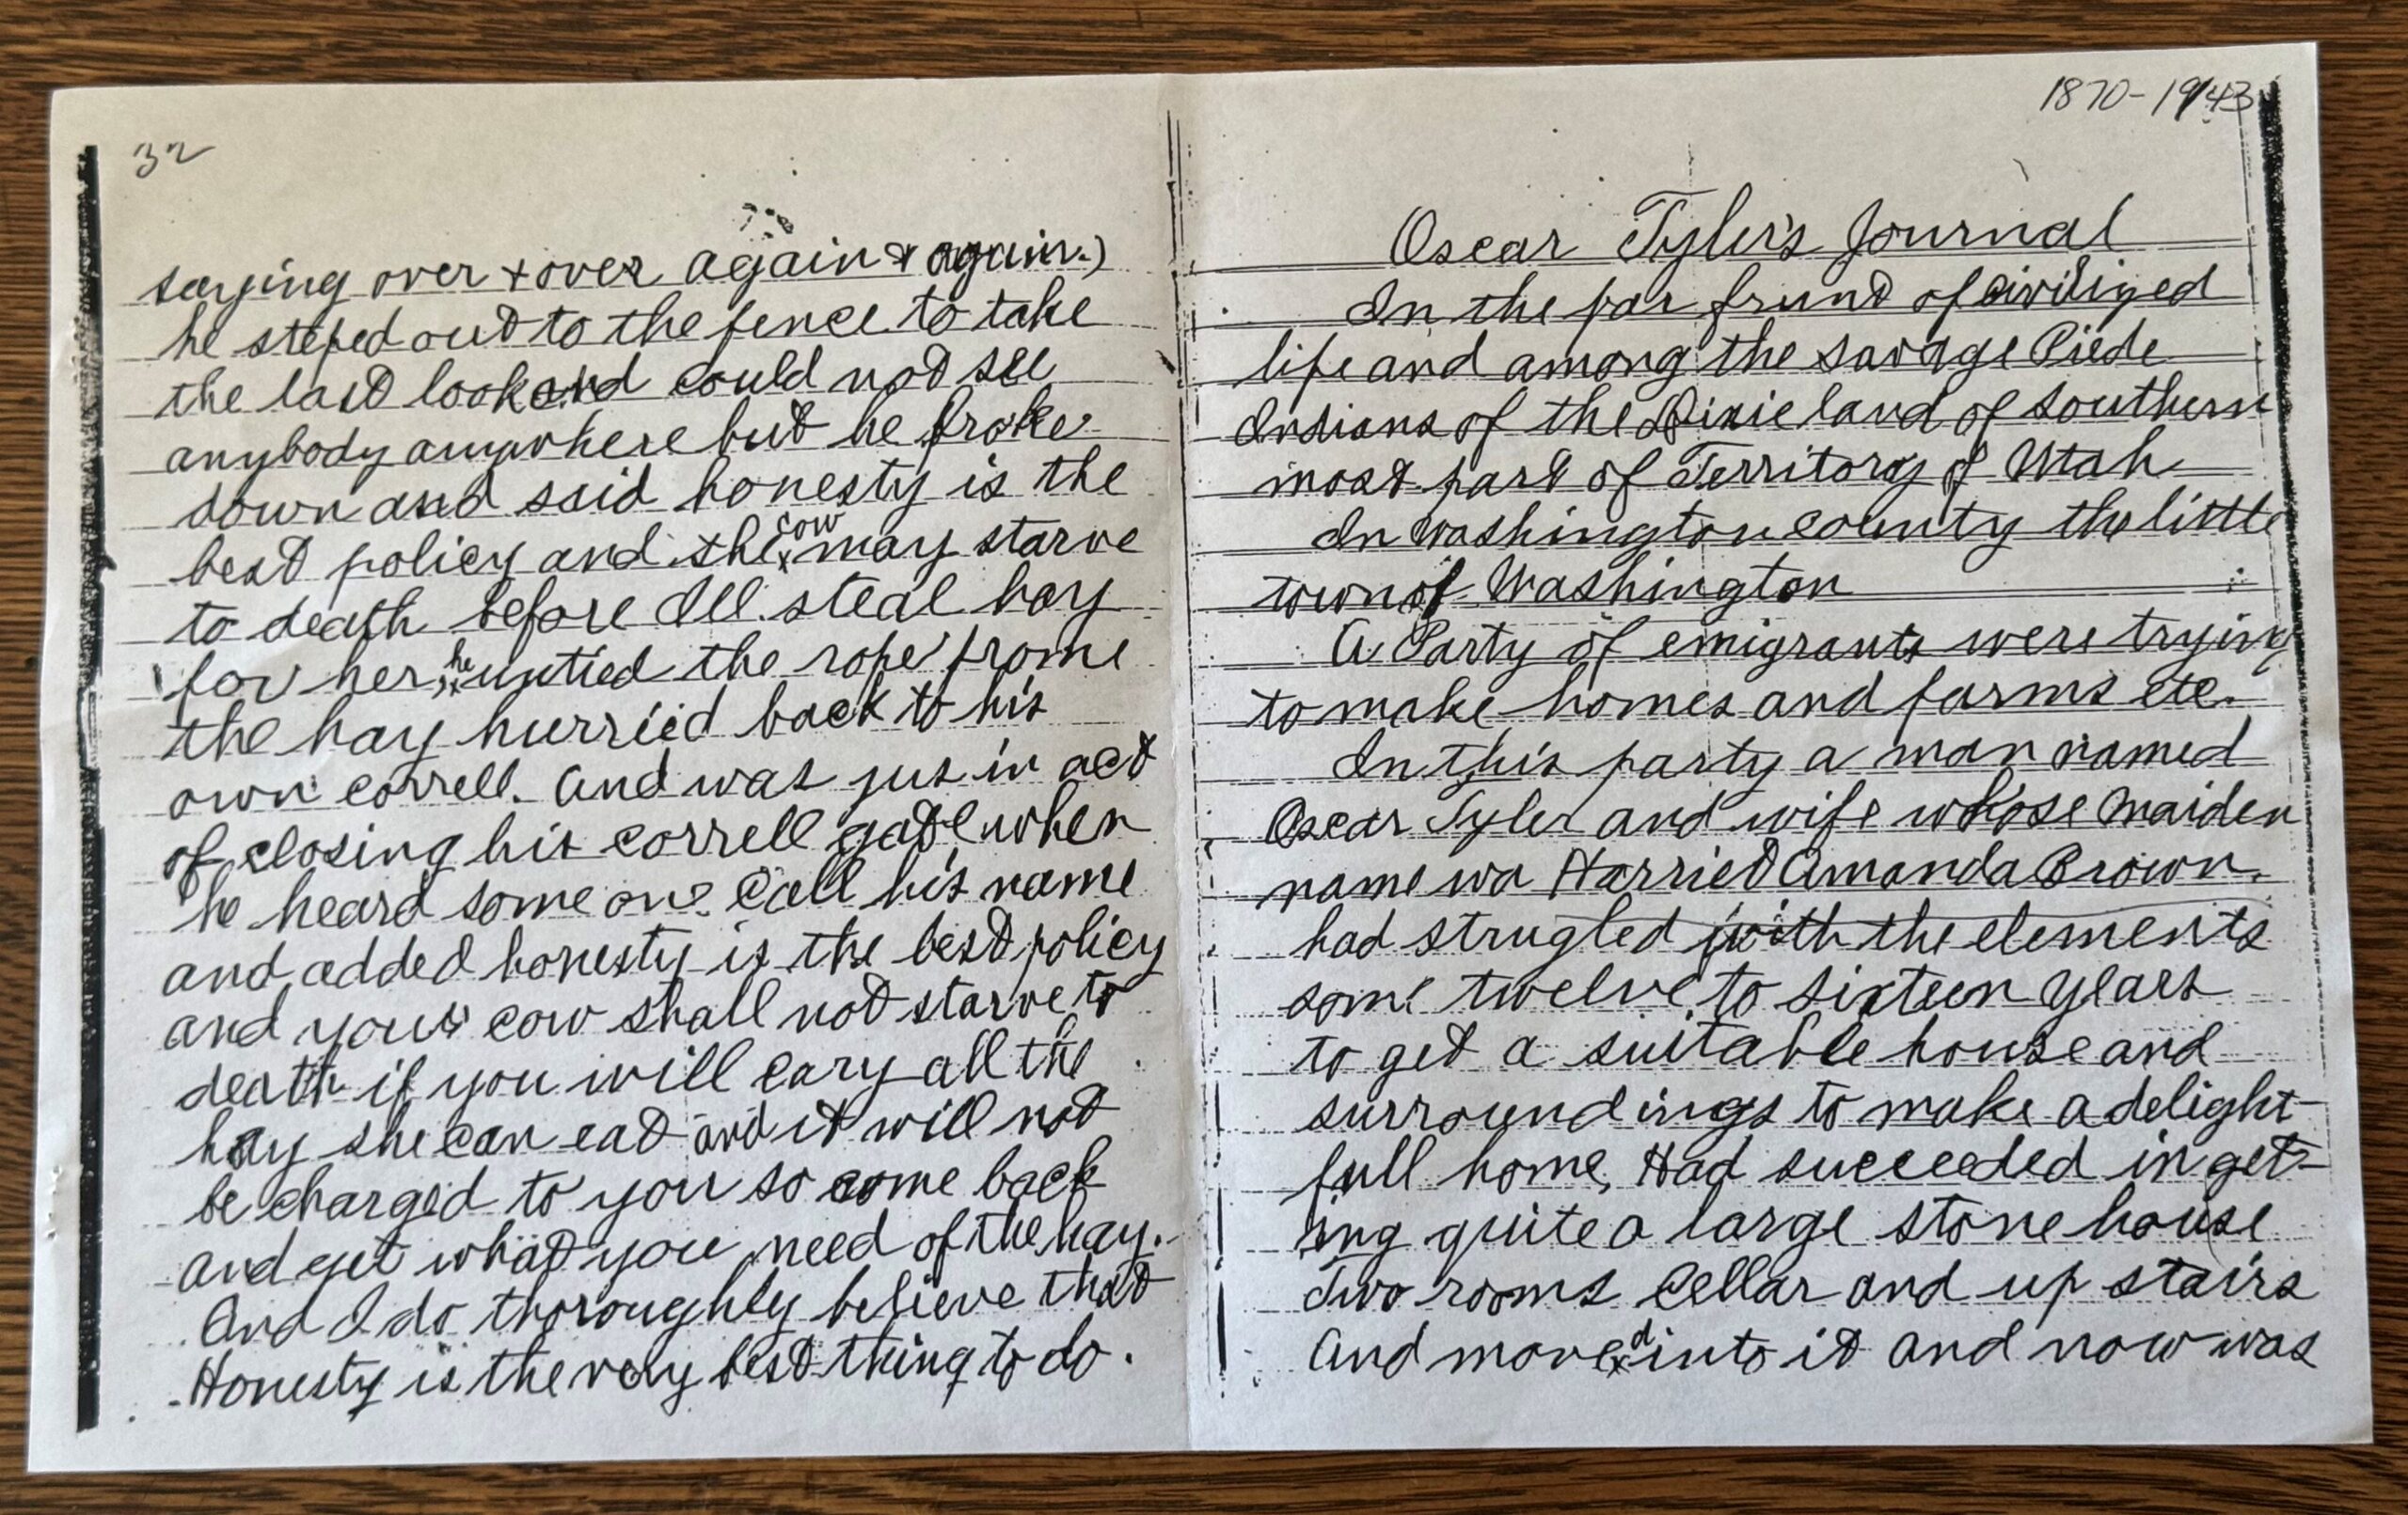 32
saying over + over again & again.)
he steped out to the fence to take
the last look and could not see
anybody anywhere but he broke
down and said honesty is the
best policy and the cow may starve
to death before Ill steal hay
for her, he untied the rope frome
the hay hurried back to his
own correll. And was jus in act
of closing his correll gate when
he heard some one call his name
and added honesty is the best policy
and your cow shall not starve to
death if you will cary all the
hay she can eat and it will not
be charged to you so come back
and get what you need of the hay.
And I do thoroughly believe that
Honesty is the very best thing to do.
1870-1943
Oscar Tyler's Journal
In the far frunt of civilized
life and among the savage Piede
Indians of the Dixie land of southern
most part of Territory of Utah
In Washington county the little
town of Washington
A Party of emigrants were trying
to make homes and farms etc.
In this party a man named
Oscar Tyler and wife whose maiden
name wa Harriet Amanda Brown.
had strugled with the elements
some twelve to sixteen years
to get a suitable house and
surroundings to make a delight-
full home, Had succeeded in get-
ing quite a large stone house
two rooms cellar and up stairs
And moved into it and now was